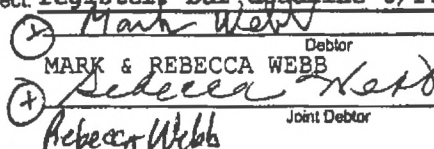 Mark Webb
Debtor
MARK & REBECCA WEBB
Rebecca Webb
Joint Debtor
Rebecca Webb